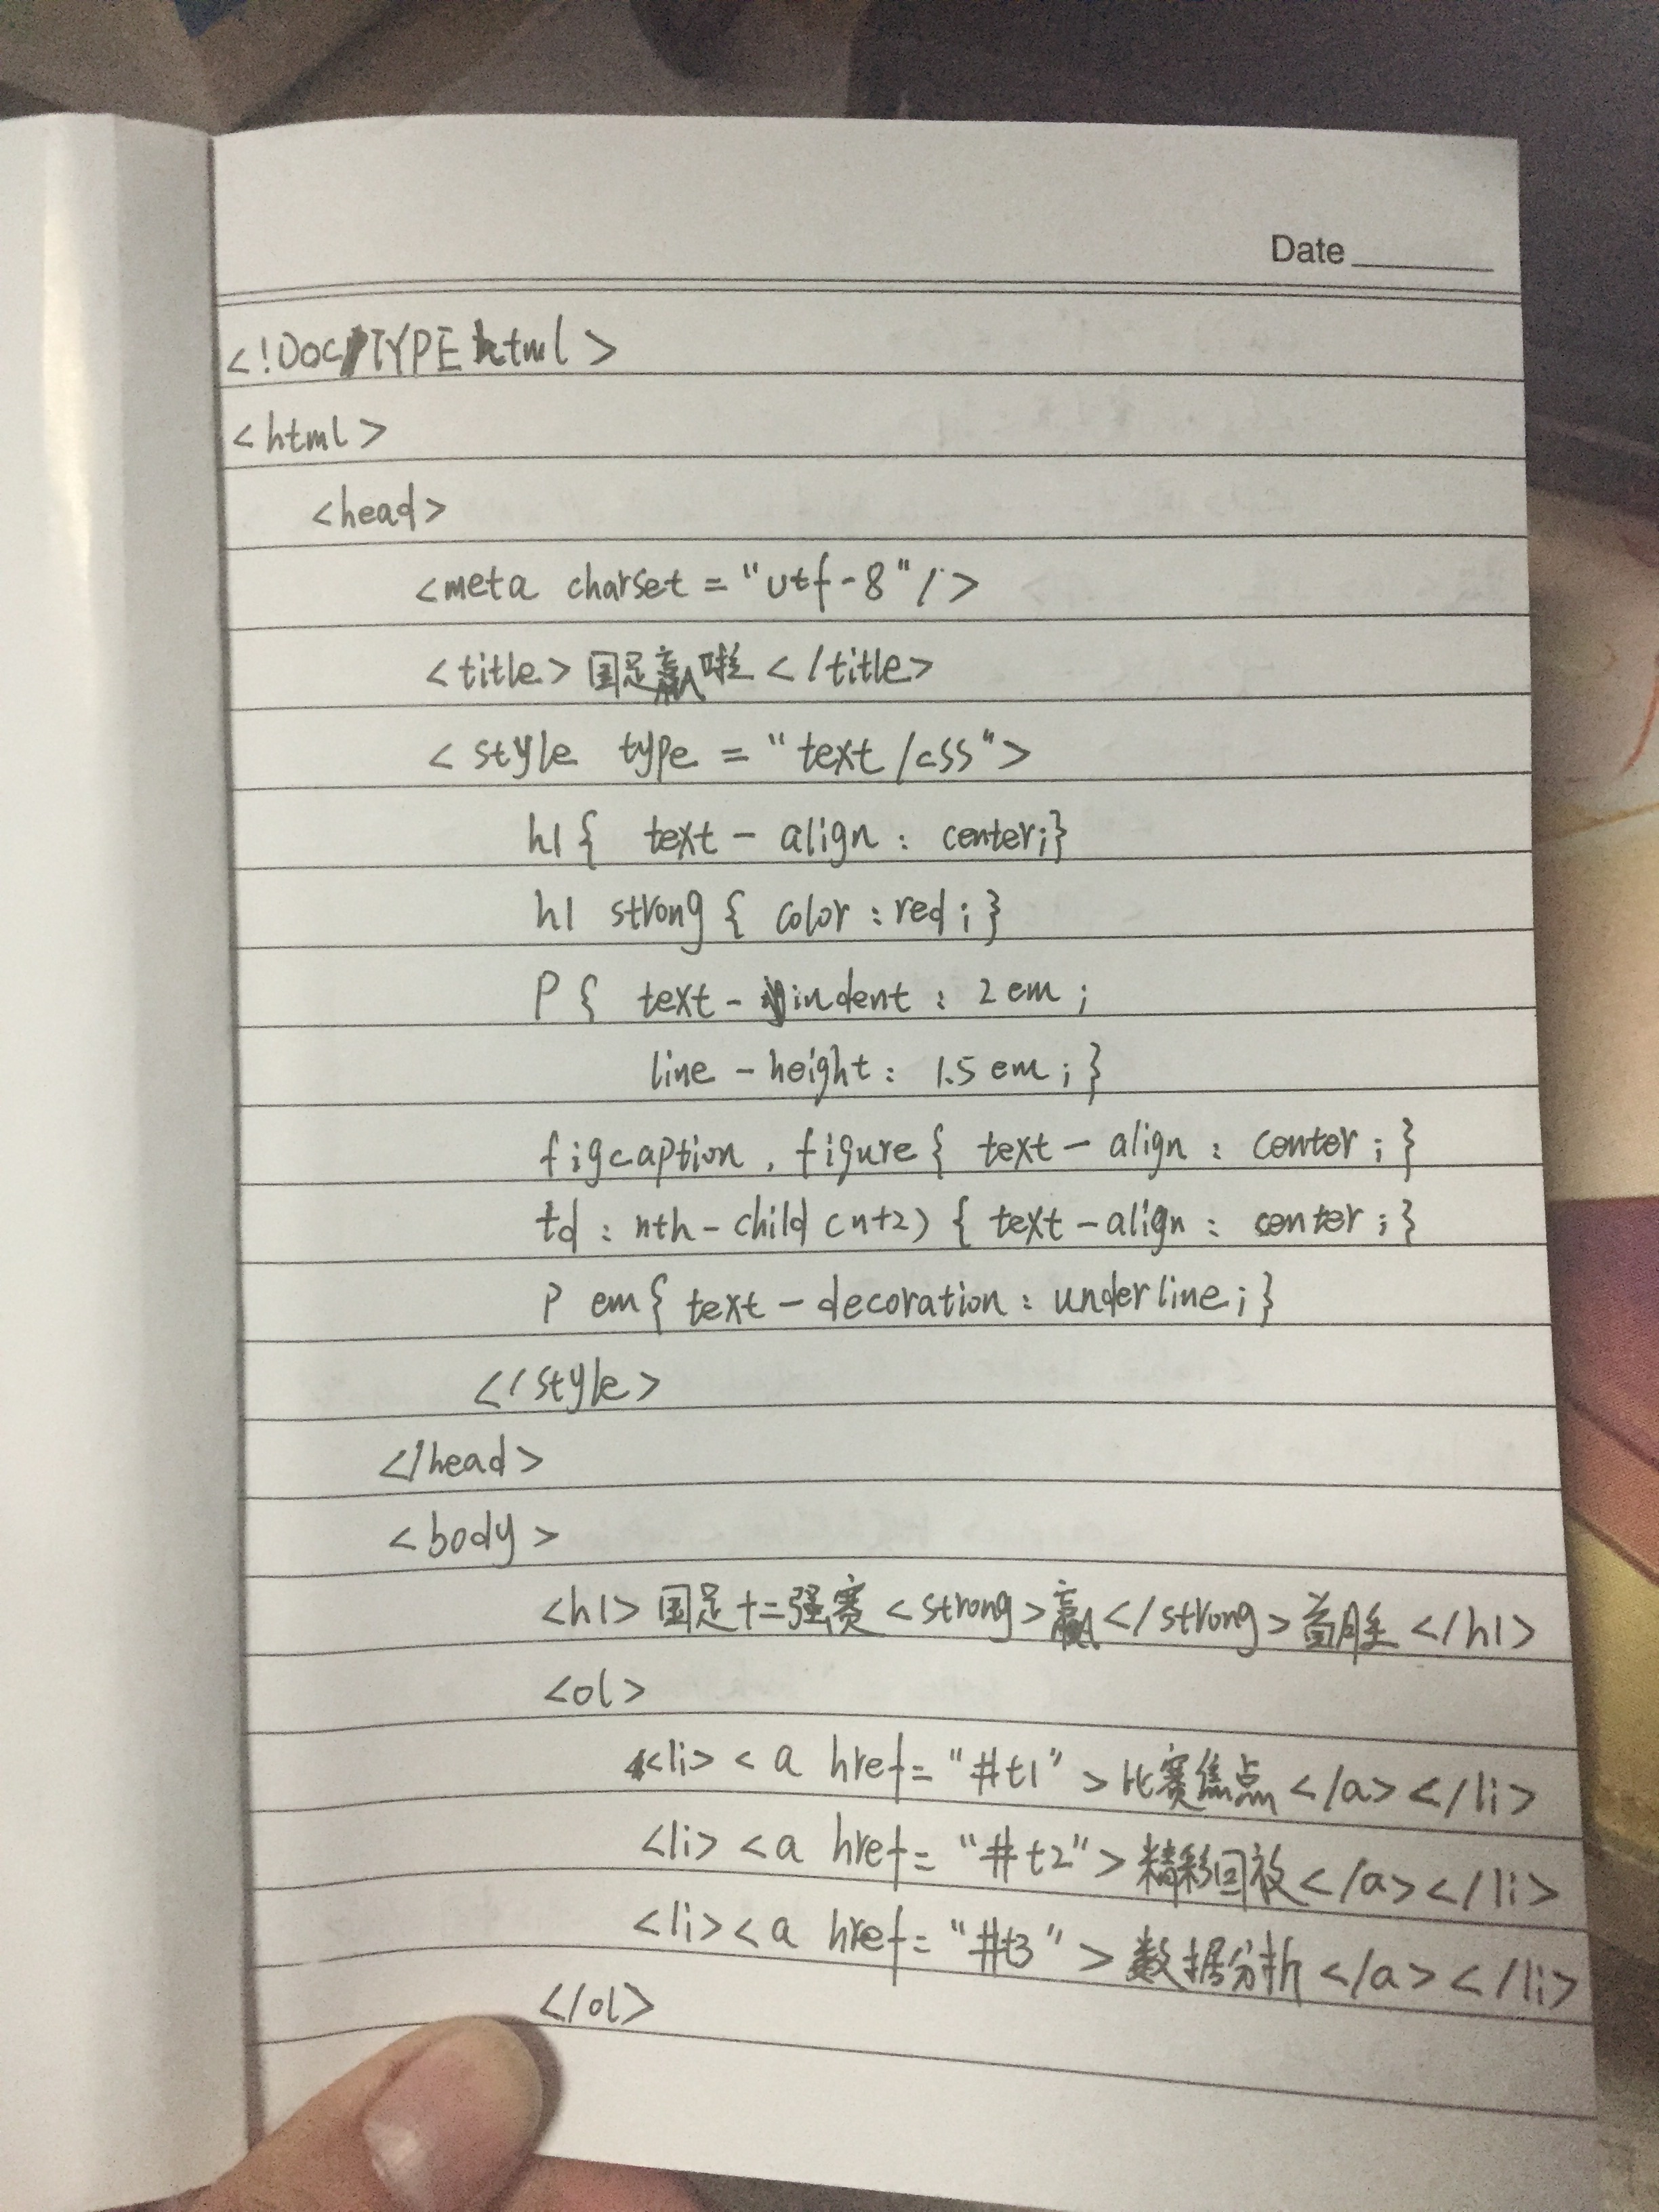 Date
<!DOCTYPE html>
<html>
<head>
<meta charset = "utf-8" />
<title>国足赢啦</title>
<style type = "text/css">
h1{ text-align : center;}
h1 strong { color : red ; }
P { text-indent : 2em ;
line-height : 1.5em ; }
figcaption , figure { text-align : center ; }
td : nth-child (n+2) { text-align : center ; }
P em{ text-decoration : underline ; }
</style>
</head>
<body>
<h1>国足十二强赛<strong>赢</strong>首胜</h1>
<ol>
<li><a href = "#t1" >比赛焦点</a></li>
<li><a href = "#t2">精彩回放</a></li>
<li><a href = "#t3" >数据分析</a></li>
</ol>